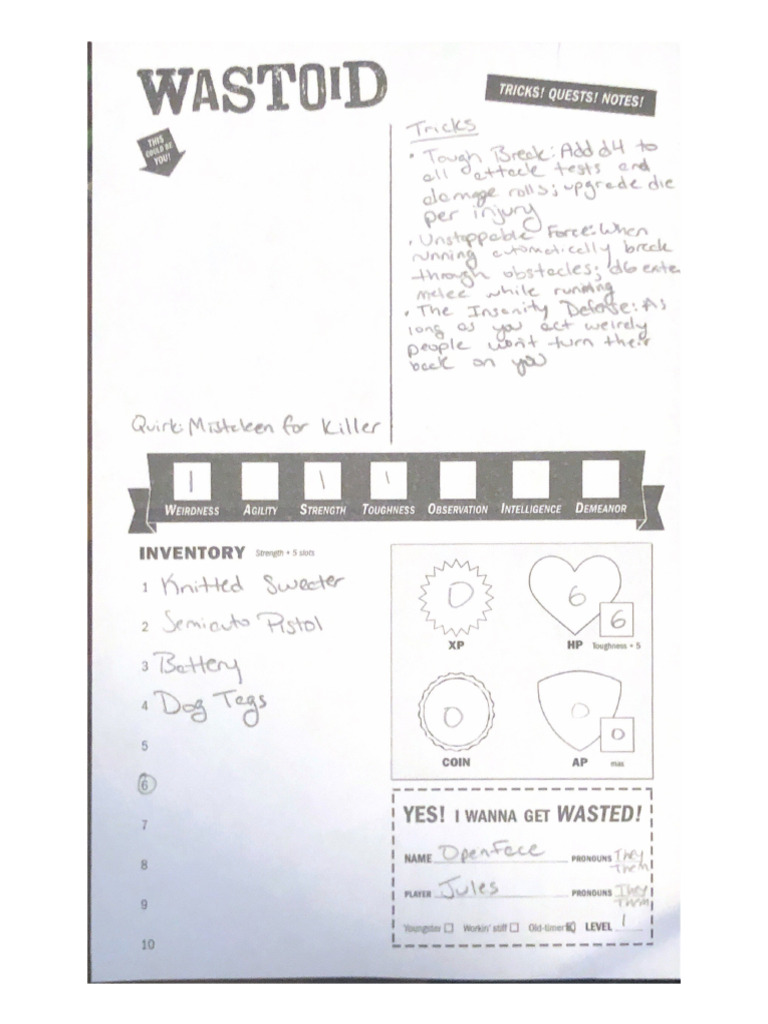 WASTOID
TRICKS! QUESTS! NOTES!
THIS
COULD BE
YOU!
Tricks
• Tough Break: Add d4 to
all attack tests and
damage rolls; upgrade die
per injury
• Unstoppable Force: When
running automatically break
through obstacles; d6 extra
melee while running
• The Insanity Defense: As
long as you act weirdly
people won't turn their
back on you
Quirk: Mistaken for Killer
1 1 1
WEIRDNESS AGILITY STRENGTH TOUGHNESS OBSERVATION INTELLIGENCE DEMEANOR
INVENTORY Strength + 5 slots
1 Knitted Sweater
2 Semiauto Pistol
3 Battery
4 Dog Tags
5
6
7
8
9
10
0
XP
6
6
HP Toughness + 5
0
COIN
0
0
AP max
YES! I WANNA GET WASTED!
NAME OpenFace PRONOUNS They Them
PLAYER Jules PRONOUNS They Them
Youngster Workin' stiff Old-timer LEVEL 1